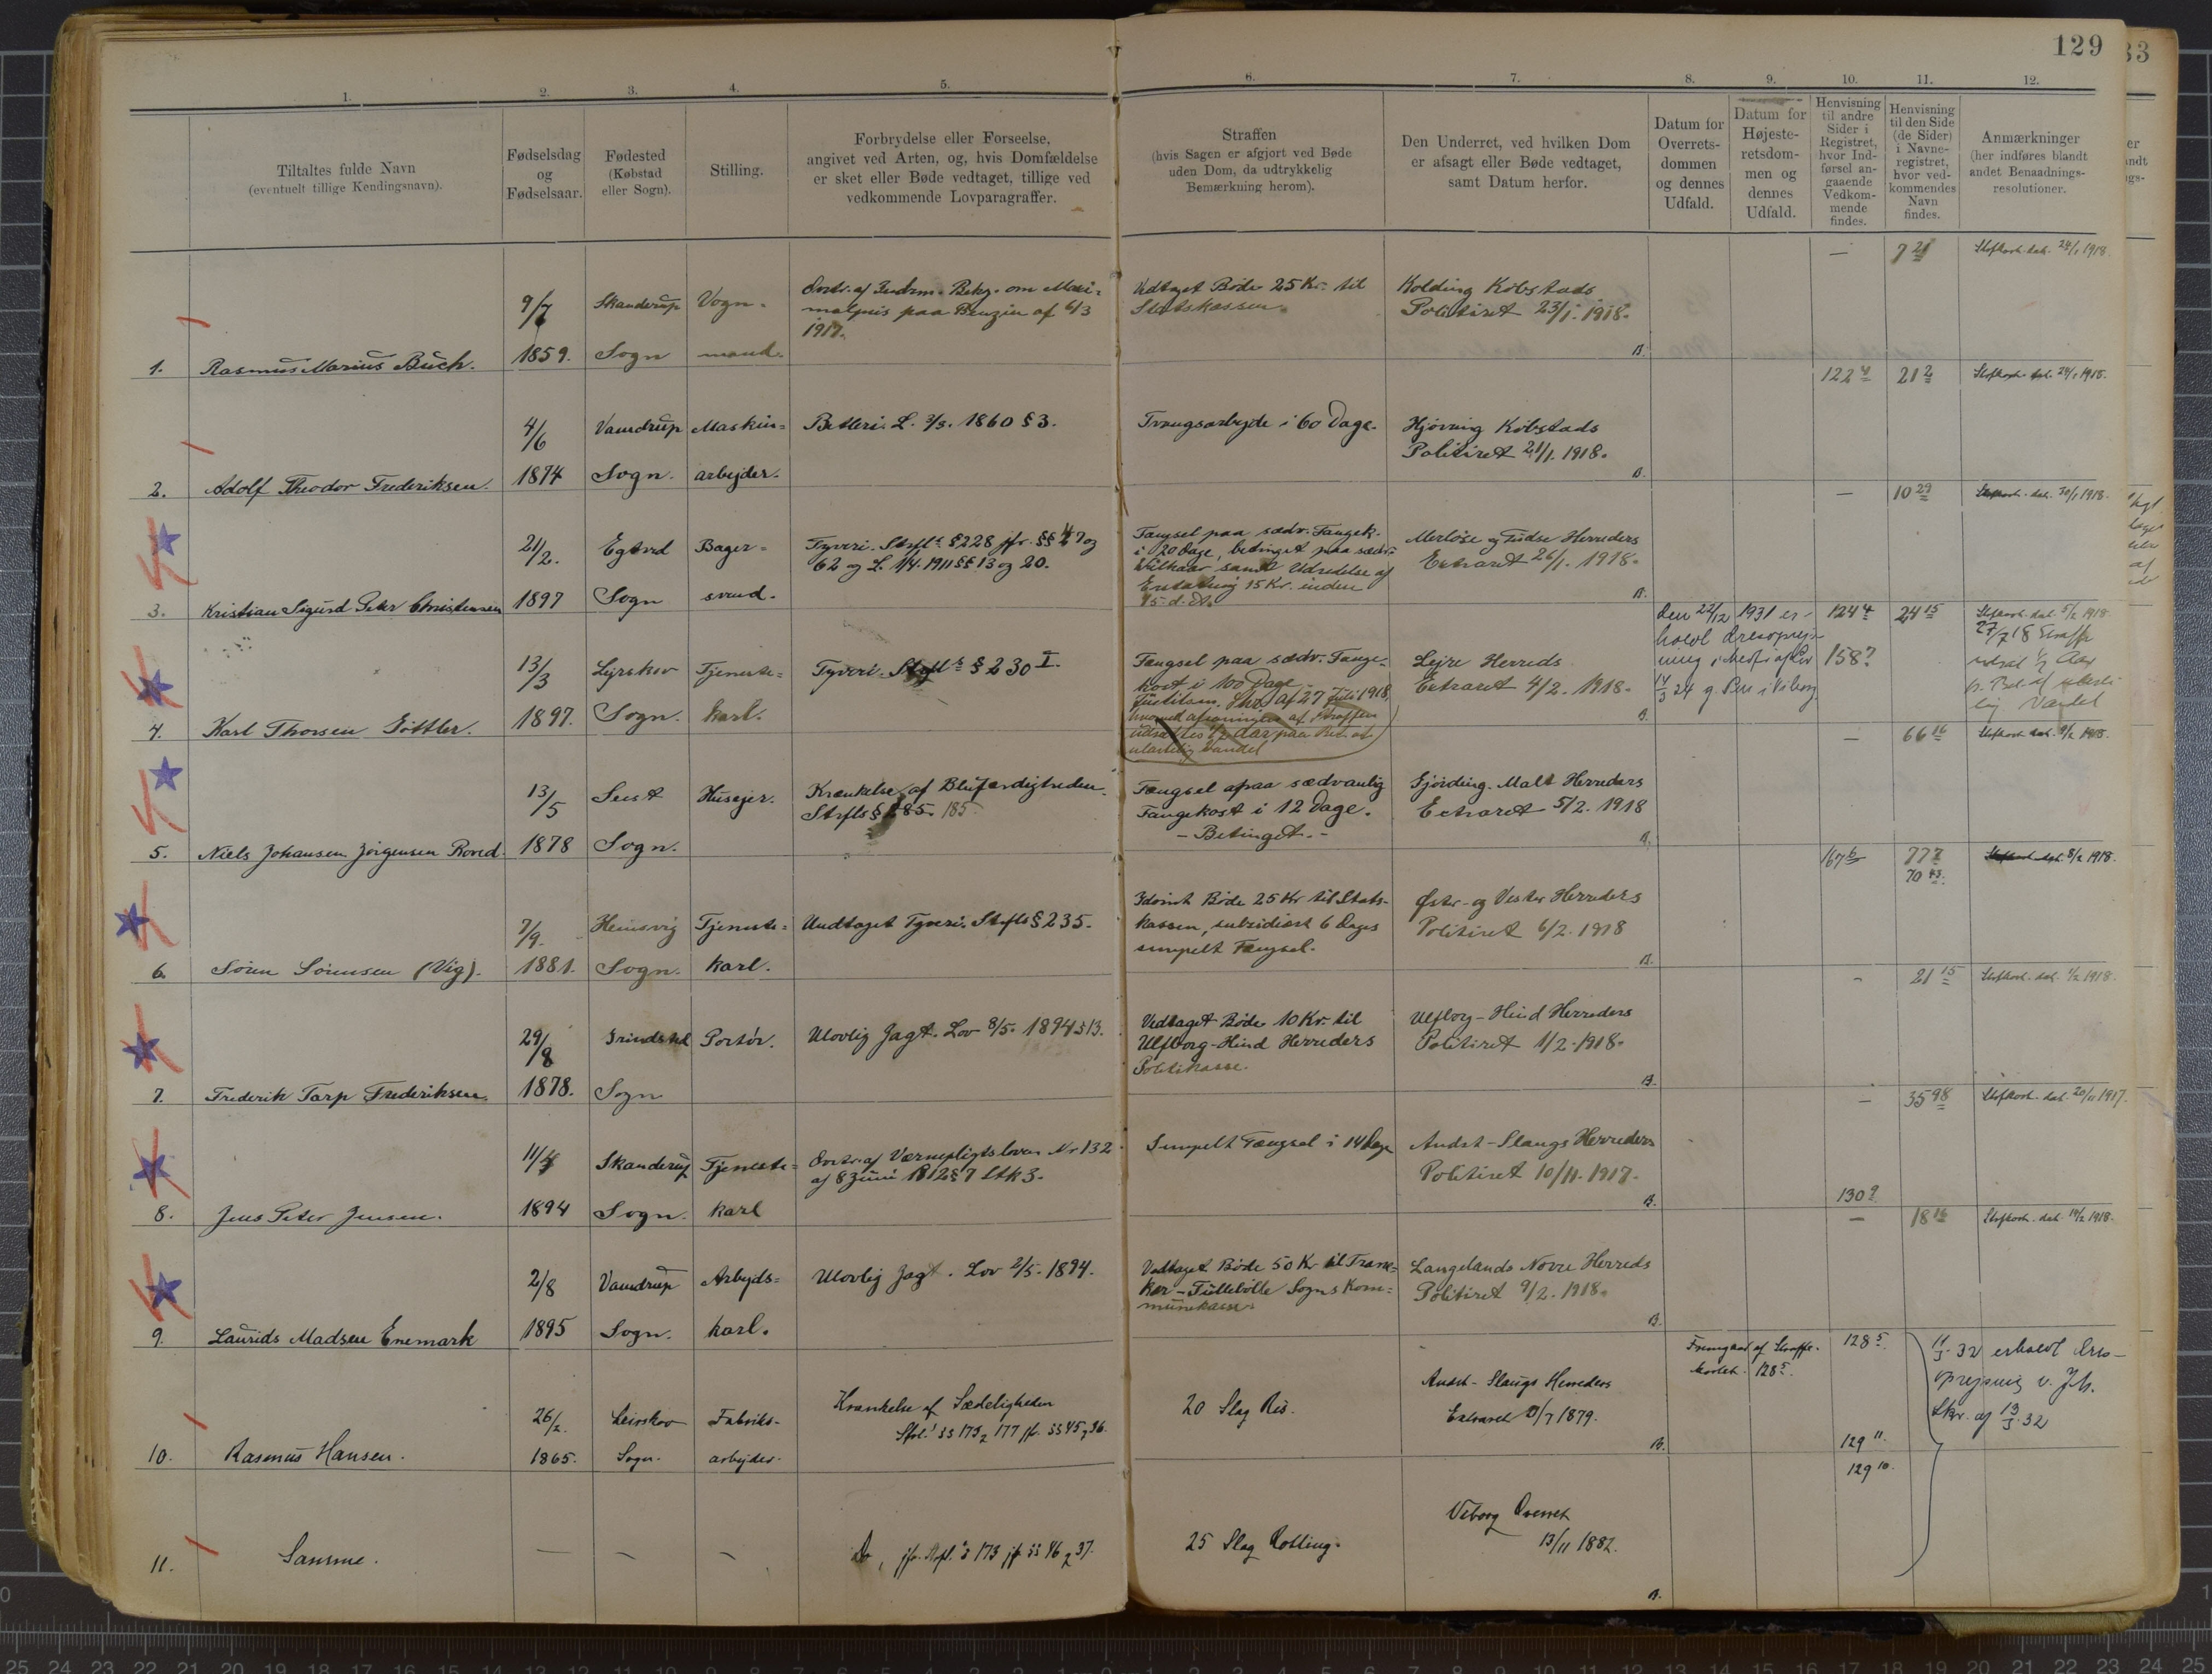 129
33
1.
2.
3.
4.
5.
6.
7.
8.
9.
10.
11.
12.
Tiltaltes fulde Navn
(eventuelt tillige Kendingsnavn).
Fødselsdag
og
Fødselsaar.
Fødested
(Købstad
eller Sogn).
Stilling.
Forbrydelse eller Forseelse,
angivet ved Arten, og, hvis Domfældelse
er sket eller Bøde vedtaget, tillige ved
vedkommende Lovparagraffer.
Straffen
(hvis Sagen er afgjort ved Bøde
uden Dom, da udtrykkelig
Bemærkning herom).
Den Underret, ved hvilken Dom
er afsagt eller Bøde vedtaget,
samt Datum herfor.
Datum for
Overrets-
dommen
og dennes
Udfald.
Datum for
Højeste-
retsdom-
men og
dennes
Udfald.
Henvisning
til andre
Sider i
Registret,
hvor Ind-
førsel an-
gaaende
Vedkom-
mende
findes.
Henvisning
til den Side
(de Sider)
i Navne-
registret,
hvor ved-
kommendes
Navn
findes.
Anmærkninger
(her indføres blandt
andet Benaadnings-
resolutioner.
1. Rasmus Marius Buch.
9/7
1859.
Skanderup
Sogn
Vogn-
mand.
Bekg. om Maxi-
malpris paa Benzin af 6/3
1917.
Vedtaget Bøde 25 Kr. til
Statskassen.
Kolding Købstads
Politiret 23/1. 1918.
B.
— 7 21
24/1 1918.
2. Adolf Theodor Frederiksen.
4/6
1874
Vamdrup
Sogn.
Maskin=
arbejder.
Betleri. L. 3/3. 1860 § 3.
Tvangsarbejde i 60 Dage.
Hjørring Købstads
Politiret 21/1. 1918.
B.
122 4
21 2
24/1 1918.
3. Kristian Sigurd Peter Christensen
21/2.
1897
Egtved
Sogn
Bager=
svend.
Tyveri. Strfls § 228 jfr. §§ 47 og
62 og L. 1/4. 1911 §§ 13 og 20.
Fængsel paa sædv. Fangek.
i 20 Dage, betinget paa sædv.
Vilkaar samt Udredelse af
Erstatning 15 Kr. inden
15 d. Dt.
Merløse og Tudse Herreders
Extraret 26/1. 1918.
B.
— 10 29
30/1 1918.
4. Karl Thorsen Göttler.
13/3
1897.
Lejrskov
Sogn.
Tjeneste=
karl.
Tyveri. Strfls § 230 I.
Fængsel paa sædv. Fange-
kost i 100 Dage
Justitsm. Skr. af 27 Juli 1918,
hvorved afsoningen af Straffen
udsættes 1/2 Aar paa Bet. af
ulastelig Vandel
Lejre Herreds
Extraret 4/2. 1918.
B.
Den 22/12 1931 er-
holdt Æresoprejs-
ning
124 4
158 7
24 15
5/2 1918
27/7 18 Straffe
udsat 1/2 Aar
p. Bet. af ulaste-
lig Vandel
5. Niels Johansen Jørgensen Roved.
13/5
1878
Seest
Sogn.
Husejer.
Krænkelse af Blufærdigheden.
Strfls § 185. 185
Fængsel paa sædvanlig
Fangekost i 12 Dage.
– Betinget. –
Gjørding-Malt Herreders
Extraret 5/2. 1918
B.
— 66 16
9/2 1918.
6. Søren Sørensen (Vig).
7/9.
1881.
Heinsvig
Sogn.
Tjeneste=
karl.
Undtaget Tyveri. Strfls § 235.
Idømt Bøde 25 Kr til Stats-
kassen, subsidiært 6 Dages
simpelt Fængsel.
Øster- og Vester Herreders
Politiret 6/2. 1918
B.
167 6
77 7
70 43.
8/2 1918.
7. Frederik Tarp Frederiksen.
29/8
1878.
Grindsted
Sogn
Portør.
Ulovlig Jagt. Lov 8/5. 1894 § 13.
Vedtaget Bøde 10 Kr. til
Ulfborg-Hind Herreders
Politikasse.
Ulfborg-Hind Herreders
Politiret 1/2. 1918.
B.
- 21 15
1/2 1918.
8. Jens Peter Jensen.
11/4
1894
Skanderup
Sogn.
Tjeneste=
karl
Ovtr. af Værnepligtsloven Nr 132
af 8 Juni 1912 § 7 Stk 3.
Simpelt Fængsel i 14 Dage
Andst-Slaugs Herreders
Politiret 10/11. 1917.
B.
— 35 98
130 9
20/11 1917.
9. Laurids Madsen Enemark
2/8
1895
Vamdrup
Sogn.
Arbejds=
karl.
Ulovlig Jagt. Lov 2/5. 1894.
Vedtaget Bøde 50 Kr til Trane=
kær-Tullebølle Sogns Kom=
munekasse.
Langelands Nørre Herreds
Politiret 9/2. 1918.
B.
— 18 16
14/2 1918.
10. Rasmus Hansen.
26/2.
1865.
Leirskov
Sogn.
Fabriks-
arbejder.
Krænkelse af Sædeligheden
§§ 173 & 177 jfr. §§ 45 & 36.
20 Slag Ris.
Andst-Slaugs Herreders
Extraret 1879.
B.
Fremgaar af Straffe-
kortet. 128 5.
128 5
129 11.
11/3 32 erholdt Æres-
oprejsning v. Jm.
Skr. af
11. Samme.
—
Do, jfr. Strfl.s § 173 jfr §§ 46 & 37.
25 Slag Rotting.
Viborg Overret
13/11 1882.
B.
129 10.